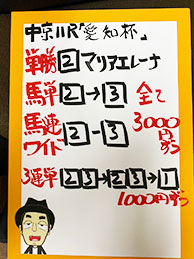 中京11R「愛知杯」
単勝 2 マリアエレーナ
馬単 2→3 全て
馬連 ワイド 2-3 3000円ずつ
3連単 23→23→1 1000円ずつ